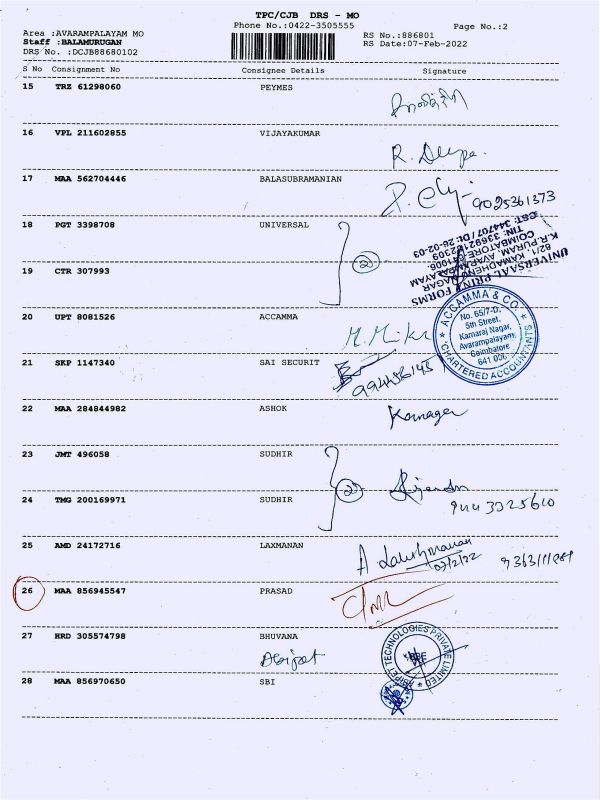 TPC/CJB DRS - MO
Phone No.:0422-3505555
Page No.:2
Area :AVARAMPALAYAM MO
Staff :BALAMURUGAN
DRS No. :DCJB88680102
RS No.:886801
RS Date:07-Feb-2022
S No Consignment No Consignee Details Signature
15 TRZ 61298060 PEYMES
16 VPL 211602855 VIJAYAKUMAR
R. Deepa.
17 MAA 562704446 BALASUBRAMANIAN
9025361373
18 PGT 3398708 UNIVERSAL
2
UNIVERSAAL PRINT FORMS
82/1, KAMADHENU NAGAR
K.R.PURAM, AVARAMPALAYAM
COIMBATORE-641006.
CST: 344707 / Dt: 26-02-03
19 CTR 307993
20 UPT 8081526 ACCAMMA
ACCAMMA & CO.
No. 65/7-D,
5th Street,
Kamaraj Nagar,
Avarampalayam,
Coimbatore
641 006
CHARTERED ACCOUNTANTS
21 SKP 1147340 SAI SECURIT
22 MAA 284844982 ASHOK
23 JMT 496058 SUDHIR
2
24 TMG 200169971 SUDHIR
25 AMD 24172716 LAXMANAN
A Lakshmanan
07/2/22
26 MAA 856945547 PRASAD
27 HRD 305574798 BHUVANA
TECHNOLOGIES PRIVATE LIMITED
28 MAA 856970650 SBI